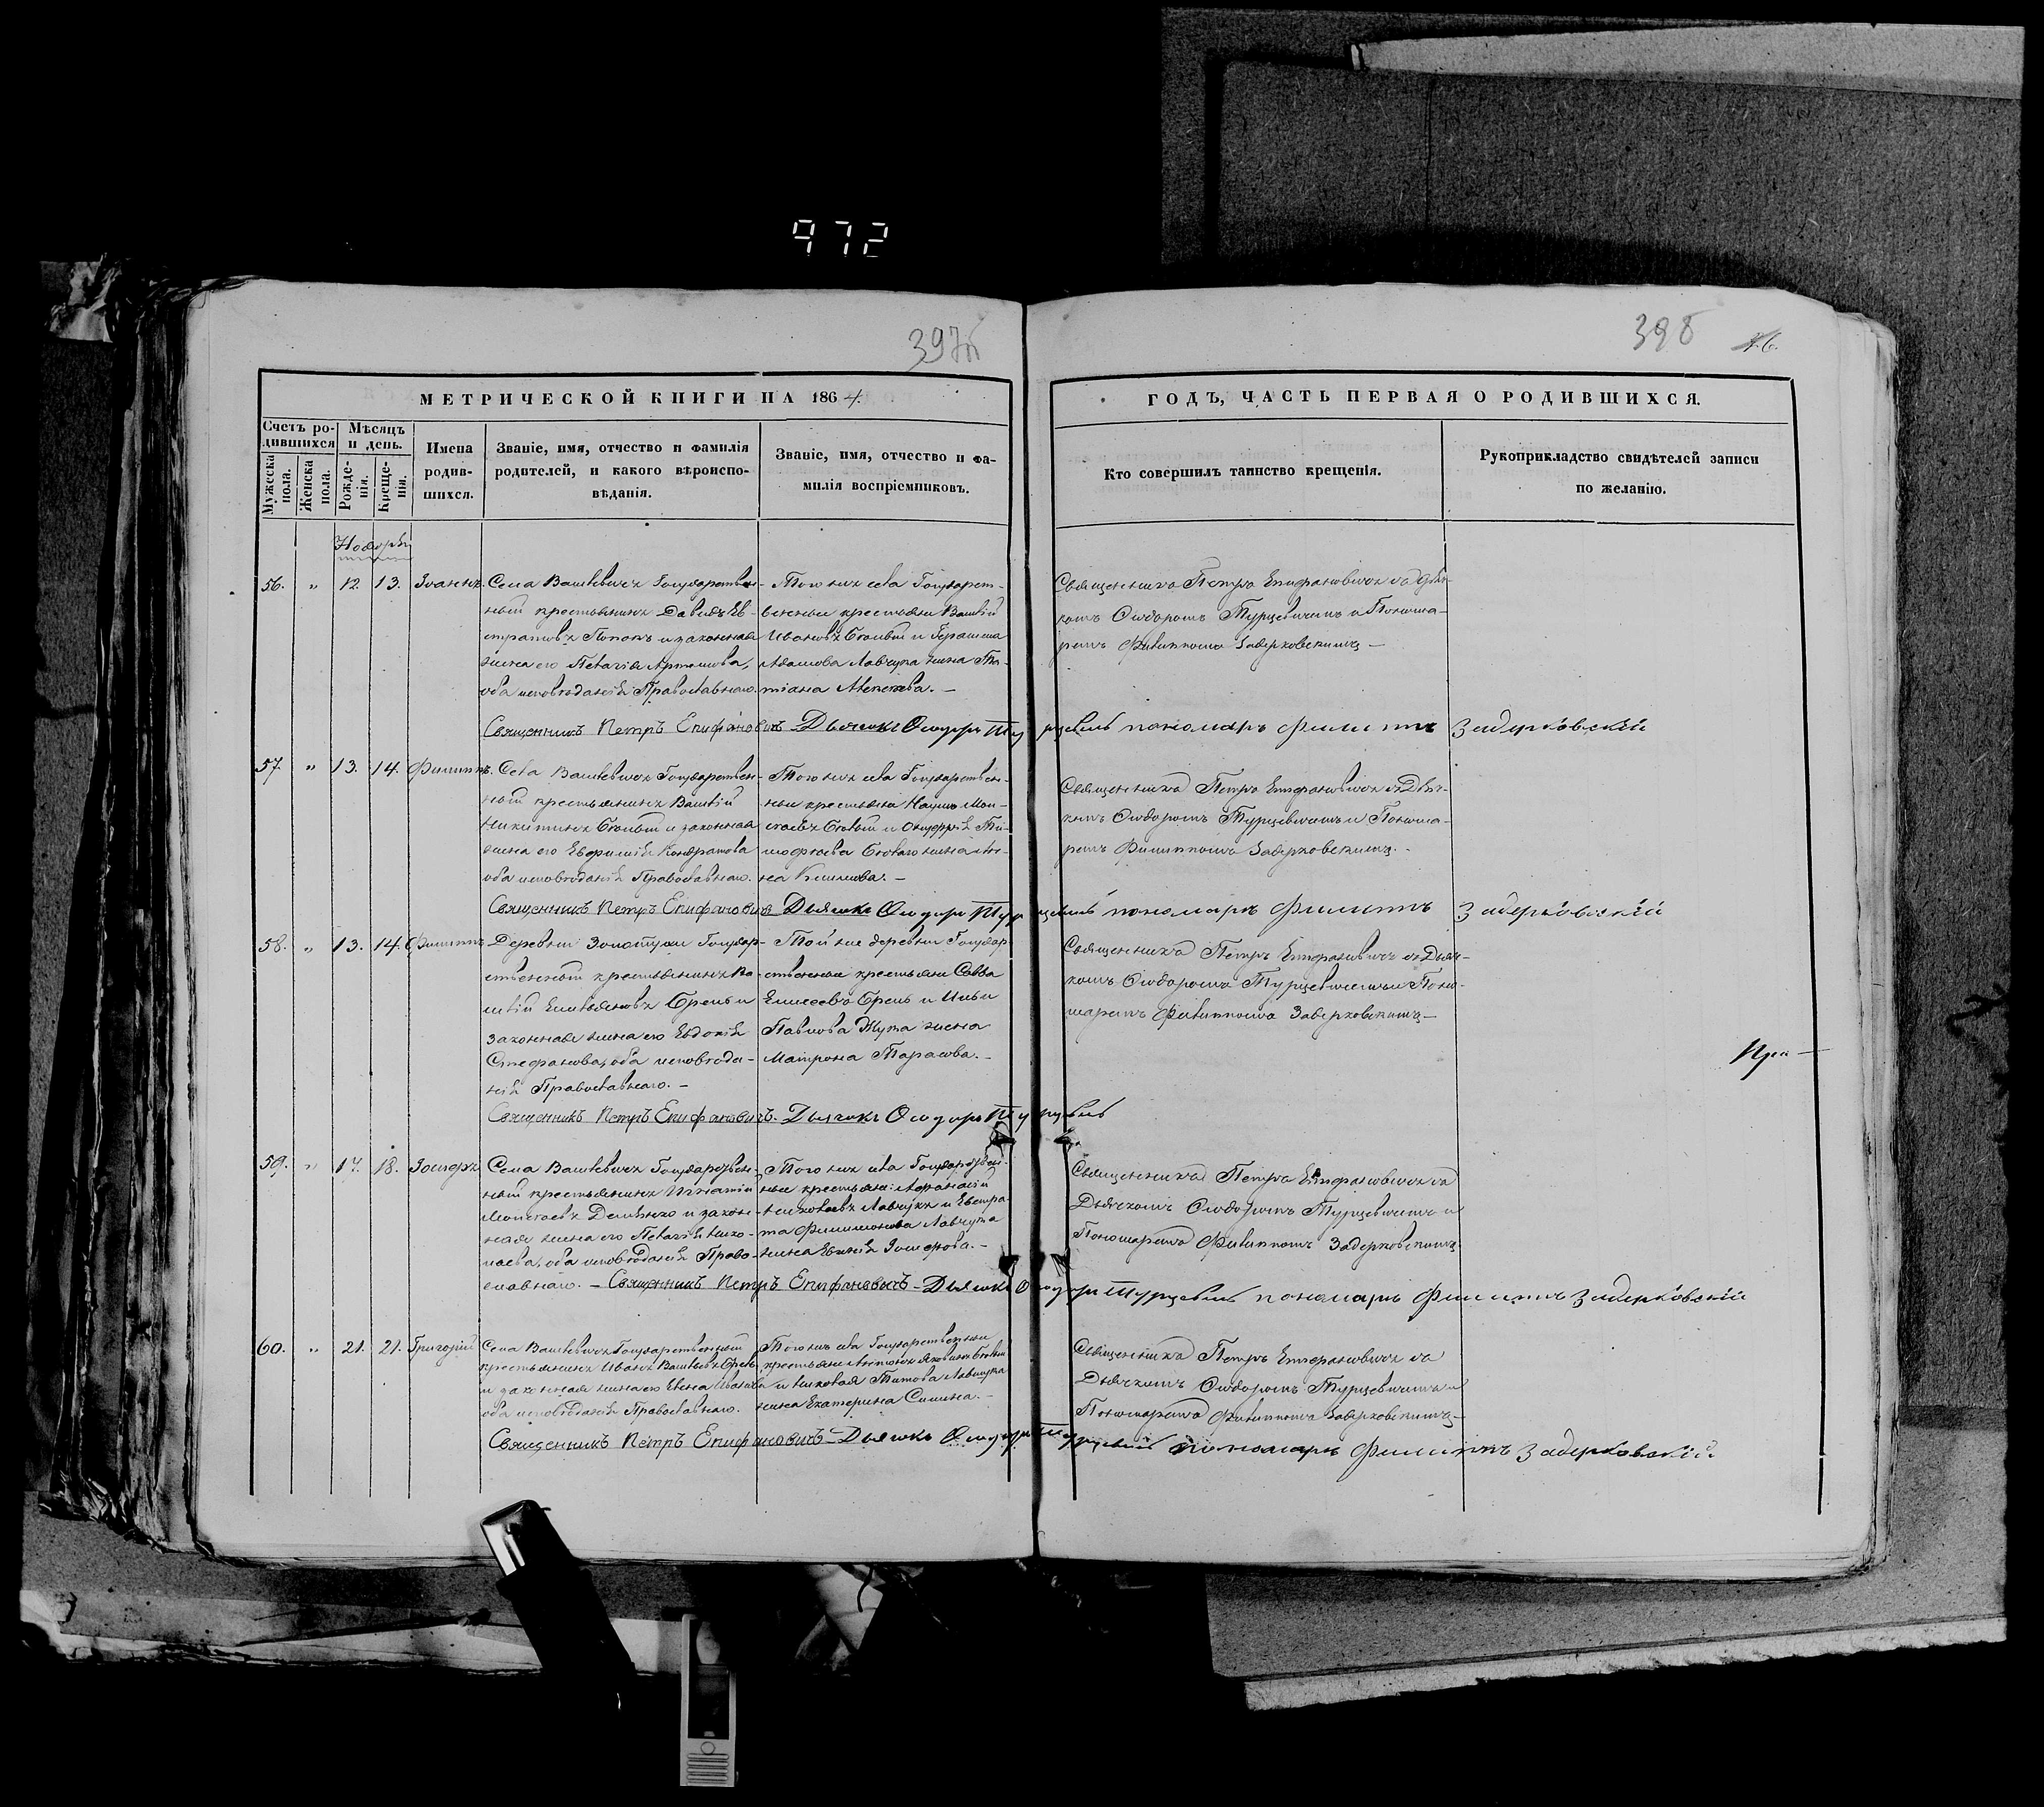 972
397
398
46.
МЕТРИЧЕСКОЙ КНИГИ НА 1864.
ГОДЪ, ЧАСТЬ ПЕРВАЯ О РОДИВШИХСЯ.
Счетъ родившихся
Мужеска пола.
Женска пола.
Мѣсяцъ и день.
Рожденія.
Крещенія.
Имена родившихся.
Званіе, имя, отчество и фамилія родителей, и какого вѣроисповѣданія.
Званіе, имя, отчество и фамилія воспріемниковъ.
Кто совершилъ таинство крещенія.
Рукоприкладство свидѣтелей записи по желанію.
Ноября
56. " 12. 13. Іоаннъ.
Села Государствен-
ный крестьянинъ Давидъ Ев-
стратовъ Попокъ и законная
жена его Пелагія Артемова,
оба исповѣданія Православнаго.
Того же села Государст-
венные крестьяне
Ивановъ и
Адамова Лавчука жена Та-
тіана Алексѣева. —
Священникъ Петръ Епифановичъ съ Дьяч-
комъ Ѳеодоромъ Турцевичемъ и Понома-
ремъ Филиппомъ Задерковскимъ —
Священникъ Петръ Епифановичъ Дьячокъ Ѳеодоръ Турцевичъ пономарь Филиппъ Задерковскій
57. " 13. 14. Филиппъ.
Села Государствен-
ный крестьянинъ
Никитинъ и законная
жена его Евфимія Кондратова
оба исповѣданія Православнаго.
Того же села Государствен-
ные крестьяне Наумъ Мои-
сеевъ и Ти-
мофеева жена Ан-
на Климова. —
Священникъ Петръ Епифановичъ съ Дьяч-
комъ Ѳеодоромъ Турцевичемъ и Понома-
ремъ Филиппомъ Задерковскимъ. -
Священникъ Петръ Епифановичъ Дьячокъ Ѳеодоръ Турцевичъ пономарь Филиппъ Задерковскій
58. " 13. 14. Филиппъ
Деревни Государ-
ственный крестьянинъ Ва-
силій Емельяновъ Брень и
законная жена его Евдокія
Стефанова, оба исповѣда-
нія Православнаго. —
Той же деревни Государ-
ственные крестьяне Савва
Елисеевъ Брень и Ильи
Павлова Жука жена
Матрона Тарасова. -
Священникъ Петръ Епифановичъ съ Дьяч-
комъ Ѳеодоромъ Турцевичемъ и Поно-
маремъ Филиппомъ Задерковскимъ —
При —
Священникъ Петръ Епифановичъ. Дьячокъ Ѳеодоръ Турцевичъ
59. " 17. 18. Іосифъ
Села Государствен-
ный крестьянинъ Игнатій
Моисеевъ и закон-
ная жена его Пелагія Нико-
лаева, оба исповѣданія Право-
славнаго. —
Того же села Государствен-
ные крестьяне: Афанасій
Николаевъ Лавчукъ и Евстра-
та Филимонова Лавчука
жена Іосифова. —
Священникъ Петръ Епифановичъ съ
Дьячкомъ Ѳеодоромъ Турцевичемъ и
Пономаремъ Филиппомъ Задерковскимъ
Священникъ Петръ Епифановичъ - Дьячокъ Ѳеодоръ Турцевичъ пономарь Филиппъ Задерковскій
60. " 21. 21. Григорій
Села Государственный
крестьянинъ Иванъ
и законная жена его Елена
оба исповѣданія Православнаго.
Того же села Государственные
крестьяне Антонъ Яковлевъ
и Николая Титова Лавчука
жена Екатерина Симина. —
Священникъ Петръ Епифановичъ съ
Дьячкомъ Ѳеодоромъ Турцевичемъ и
Пономаремъ Филиппомъ Задерковскимъ —
Священникъ Петръ Епифановичъ — Дьячокъ Ѳеодоръ Турцевичъ пономарь Филиппъ Задерковскій